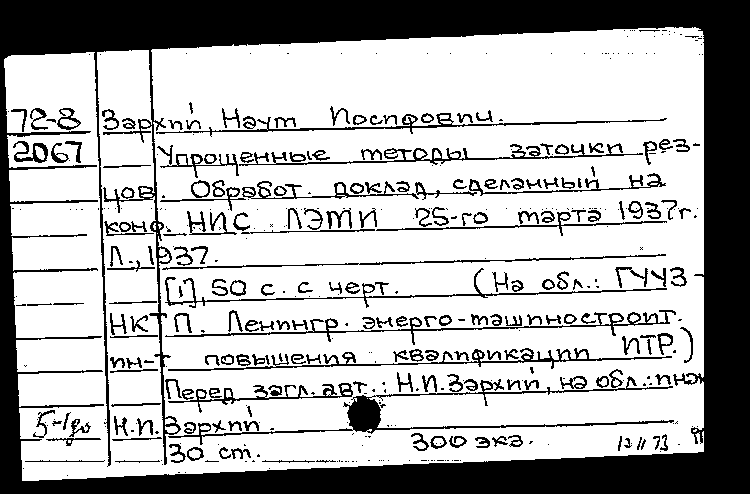 72-8 Зархий, Наум Иосифович.
2067 Упрощенные методы заточки рез-
цов. Обработ. доклад, сделанный на
конф. НИС ЛЭМИ 25-го марта 1937г.
Л., 1937.
[1], 50 с. с черт. (На обл.: ГУУЗ -
НКТП. Ленингр. энерго-машиностроит.
ин-т повышения квалификации ИТР.)
Перед загл. авт.: Н.И.Зархий, на обл.: инж
Н.И. Зархий.
30 ст. 300 экз. 12 11 73